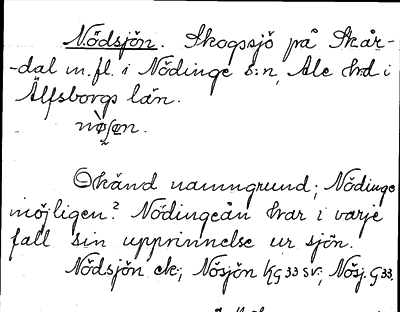 Nödsjön. Skogssjö på Skår-
-dal m.fl. i Nödinge s:n, Ale hd i
Älfsborgs län.
Okänd namngrund; Nödinge
möjligen? Nödingeån har i varje
fall sin upprinnelse ur sjön.
Nödsjön ek; Nösjön KG 33 sv; Nösj. G 33.